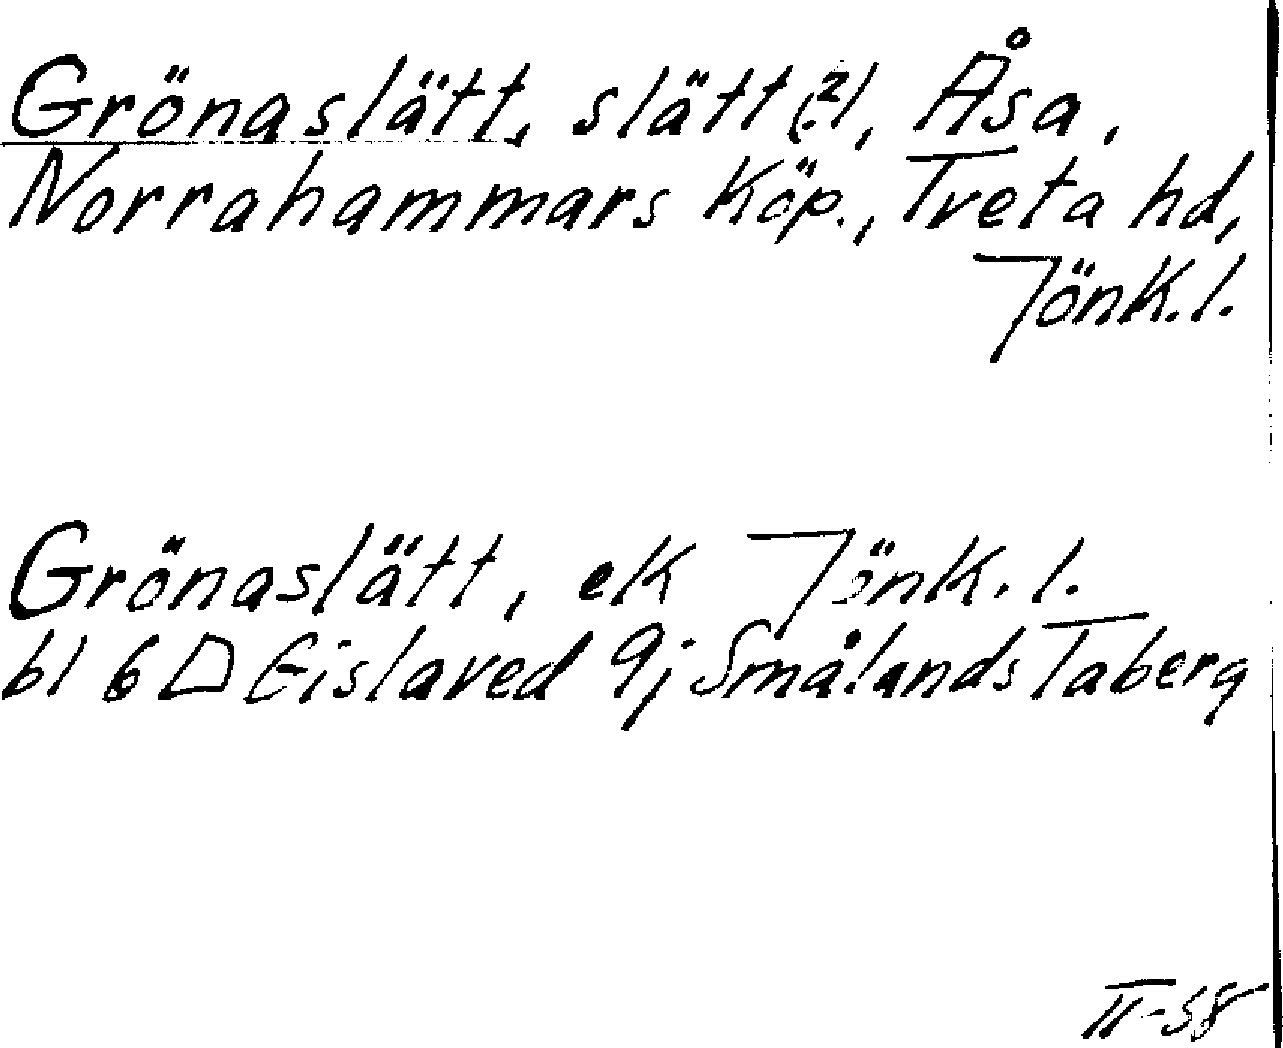 Grönaslätt, slätt (?), Åsa,
Norrahammars Köp., Tveta hd,
Jönk. l.
Grönaslätt, ek Jönk. l.
bl 6 D Gislaved 9j Smålands Taberg
II-58